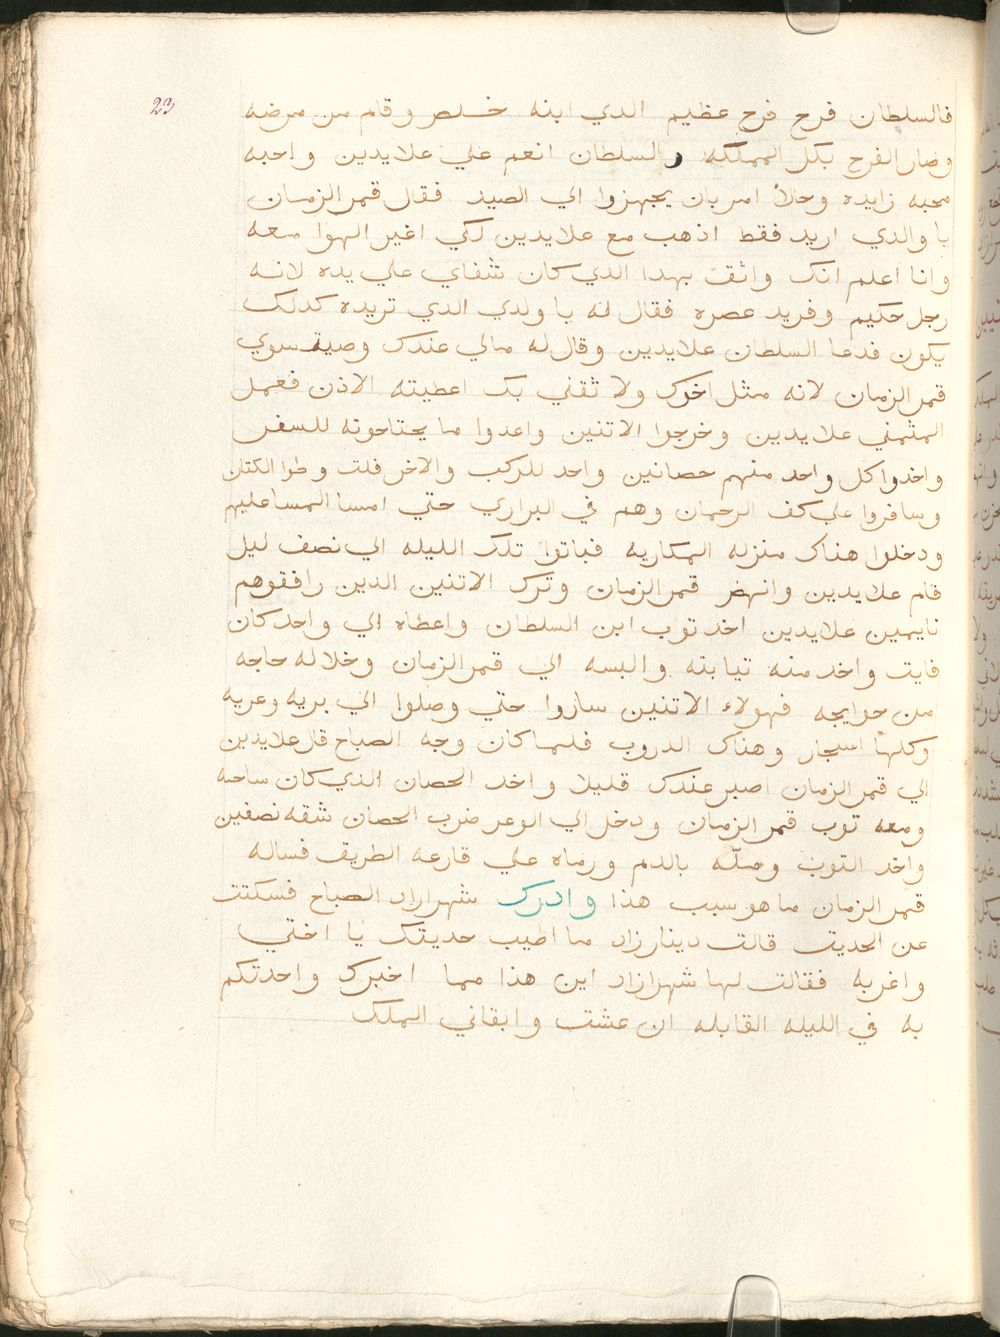 23
فالسلطان فرح فرح عظيم الدي ابنه خلص وقام من مرضه
وصار الفرح بكل المملكه والسلطان انعم علي علايدين واحبه
محبه زايده وحالاً امر بان يجهزوا الي الصيد فقال قمر الزمان
يا والدي اريد فقط اذهب مع علايدين لكي اغير الهوا معه
وانا اعلم انك واثقت بهدا الدي كان شفاي علي يده لانه
رجل حكيم وفريد عصره فقال له يا ولدي الدي تريده كدلك
يكون فدعا السلطان علايدين وقال له مالي عندك وصية سوي
قمر الزمان لانه مثل اخوك ولا ثقني بك اعطيته الاذن فعمل
المثمني علايدين وخرجوا الاتنين واعدوا ما يحتاجونه للسفر
واخدوا كل واحد منهم حصانين واحد للركب والاخر فلت وطوا الكتان
وسافروا علي كف الرحمان وهم في البراري حتي امسا المسا عليهم
ودخلوا هناك منزله المكاريه فباتوا تلك الليله الي نصف ليل
قام علايدين وانهض قمر الزمان وترك الاتنين الدين رافقوهم
نايمين علايدين اخد توب ابن السلطان واعطاه الي واحد كان
فايت واخد منه تيابته والبسه الي قمر الزمان وخلا له حاجه
من حوايجه فهولاء الاتنين ساروا حتي وصلوا الي بريه وعريه
وكلها اسجار وهناك الدروب فلما كان وجه الصباح قال علايدين
الي قمر الزمان اصبر عندك قليلا واخد الحصان الذي كان ساحبه
ومعه توب قمر الزمان ودخل الي الوعر ضرب الحصان شقه نصفين
واخد التوب وملّه بالدم ورماه علي قارعه الطريق فساله
قمر الزمان ما هو سبب هذا وادرك شهرازاد الصباح فسكتت
عن الحديت قالت دينارزاد ما اطيب حديتك يا اختي
واغربه فقالت لها شهرازاد اين هذا مما اخبرك واحدتكم
به في الليله القابله ان عشت وابقاني الملك